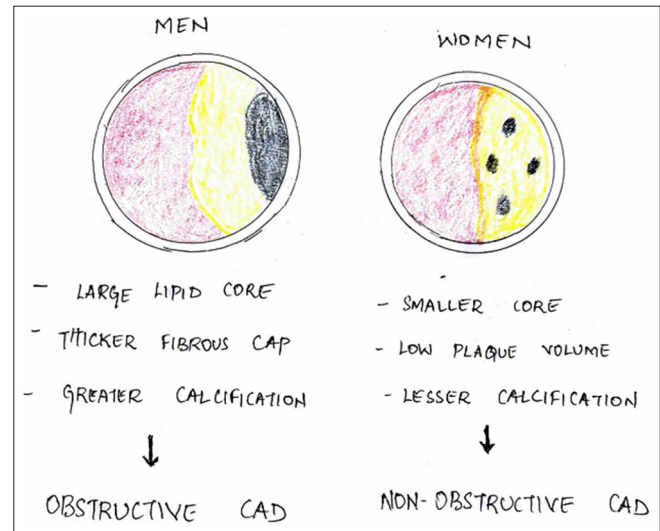 MEN
- LARGE LIPID CORE
- THICKER FIBROUS CAP
- GREATER CALCIFICATION
↓
OBSTRUCTIVE CAD
WOMEN
- SMALLER CORE
- LOW PLAQUE VOLUME
- LESSER CALCIFICATION
↓
NON-OBSTRUCTIVE CAD